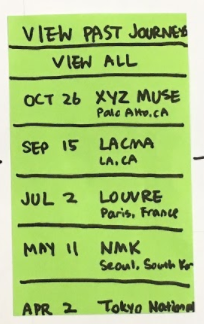 VIEW PAST JOURNEYS
VIEW ALL
OCT 26 XYZ MUSE
Palo Alto, CA
SEP 15 LACMA
LA, CA
JUL 2 LOUVRE
Paris, France
MAY 11 NMK
Seoul, South Kor
APR 2 Tokyo National